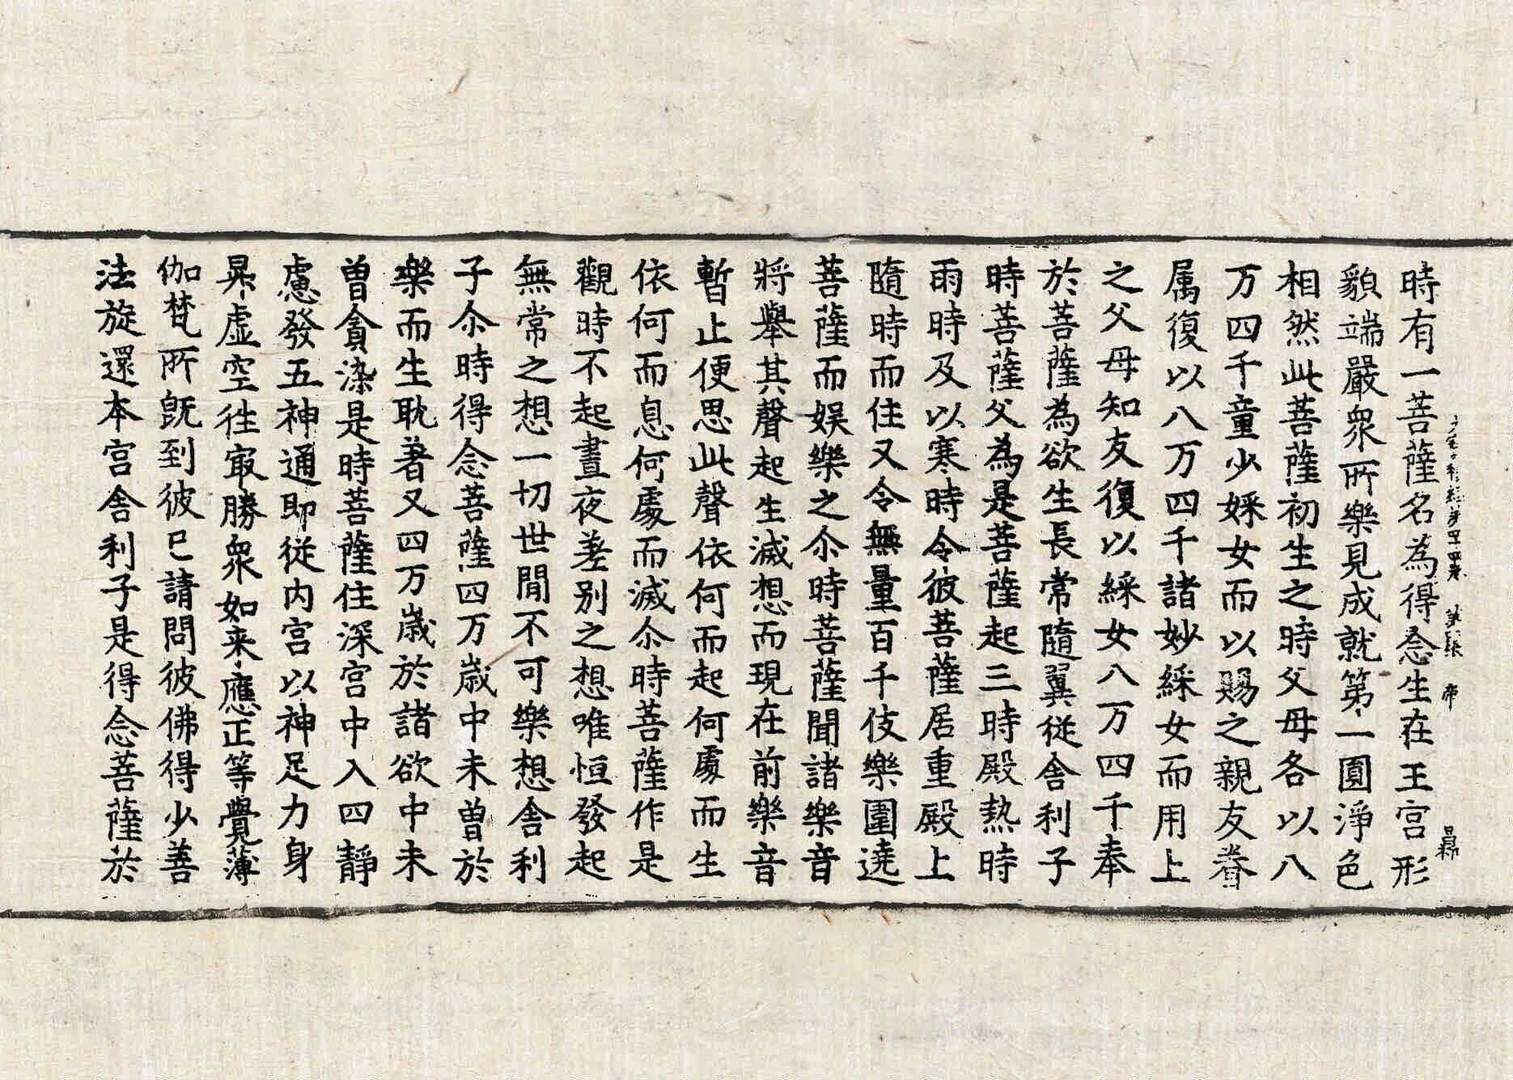 時有一菩薩名為得念生在王宮形
貌端嚴衆所樂見成就第一圓淨色
相然此菩薩初生之時父母各以八
万四千童少婇女而以賜之親友眷
属復以八万四千諸妙婇女而用上
之父母知友復以綵女八万四千奉
於菩薩為欲生長常隨翼從舍利子
時菩薩父為是菩薩起三時殿熱時
雨時及以寒時令彼菩薩居重殿上
隨時而住又令無量百千伎樂圍遶
菩薩而娛樂之尒時菩薩聞諸樂音
將舉其聲起生滅想而現在前樂音
暫止便思此聲依何而起何處而生
依何而息何處而滅尒時菩薩作是
觀時不起晝夜差別之想唯恒發起
無常之想一切世間不可樂想舍利
子尒時得念菩薩四万歲中未曽於
樂而生耽著又四万歲於諸欲中未
曽貪染是時菩薩住深宮中入四靜
慮發五神通即從内宮以神足力身
昇虛空徃㝡勝衆如来應正等覺薄
伽梵所既到彼已請問彼佛得少善
法旋還本宮舍利子是得念菩薩於